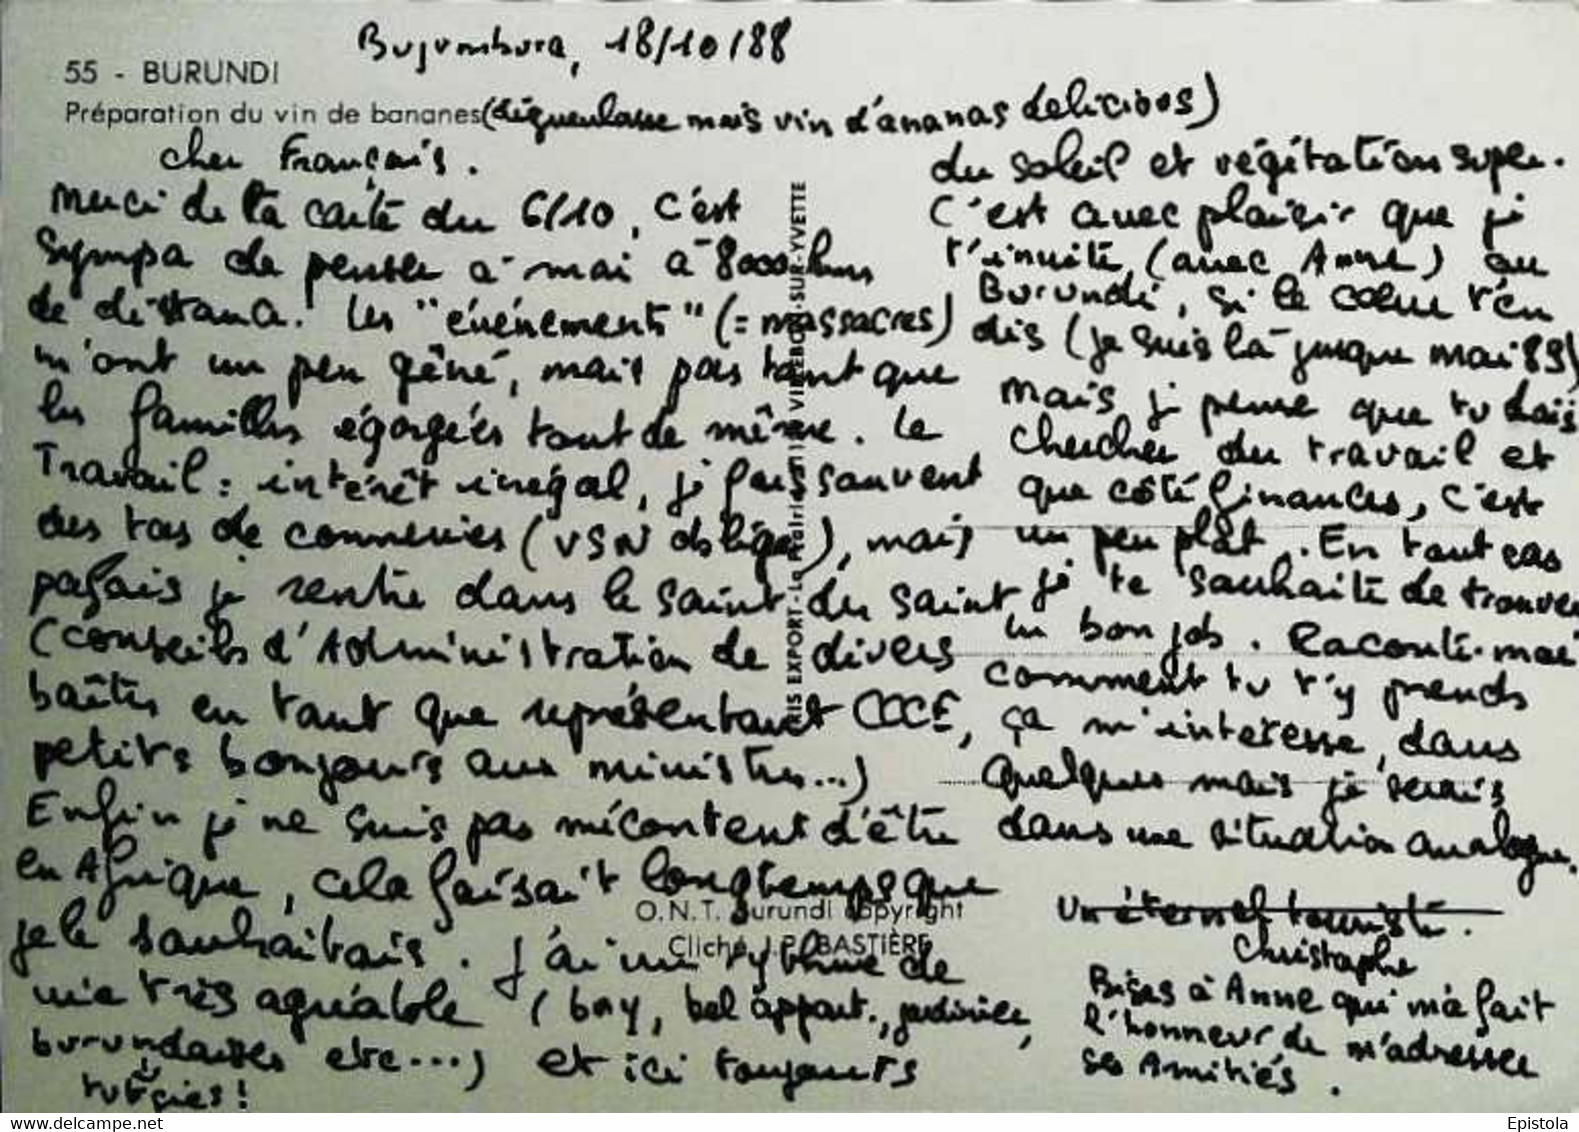 Bujumbura, 18/10/88
55 - BURUNDI
Préparation du vin de bananes (dégueulasse mais vin d'ananas délicieux)
cher François.
Merci de ta carte du 6/10, c'est
sympa de penser à moi à 8000 kms
de distance. Les "événements" (= massacres)
m'ont un peu gêné, mais pas tant que
les familles égorgées tout de même. Le
Travail : intérêt inégal, je fais souvent
des tas de conneries (VSN oblige), mais
parfois je rentre dans le saint du saint
(conseils d'Administration de divers
boîtes en tant que représentant CCCE,
petits bonjours aux ministres...)
Enfin je ne suis pas mécontent d'être
en Afrique, cela faisait longtemps que
je le souhaitais. J'ai un rythme de
vie très agréable (boy, bel appart.,
burundaises etc...) et ici toujours
tutsies !
du soleil et végétation super.
C'est avec plaisir que je
t'invite (avec Anne) au
Burundi, si le coeur t'en
dis (je suis là jusque mai 89)
Mais je pense que tu dois
chercher du travail et
que côté finances, c'est
un peu plat. En tout cas
je te souhaite de trouver
un bon job. Raconte-moi
comment tu t'y prends
ça m'intéresse, dans
quelques mois je serais
dans une situation analogue.
Un éternel touriste.
Christophe
Bises à Anne qui m'a fait
l'honneur de m'adresser
ses Amitiés.
IS EXPORT - La Prairie VILLEBON-SUR-YVETTE
O.N.T. Burundi copyright
Cliché J.P. BASTIÈRE
Epistola